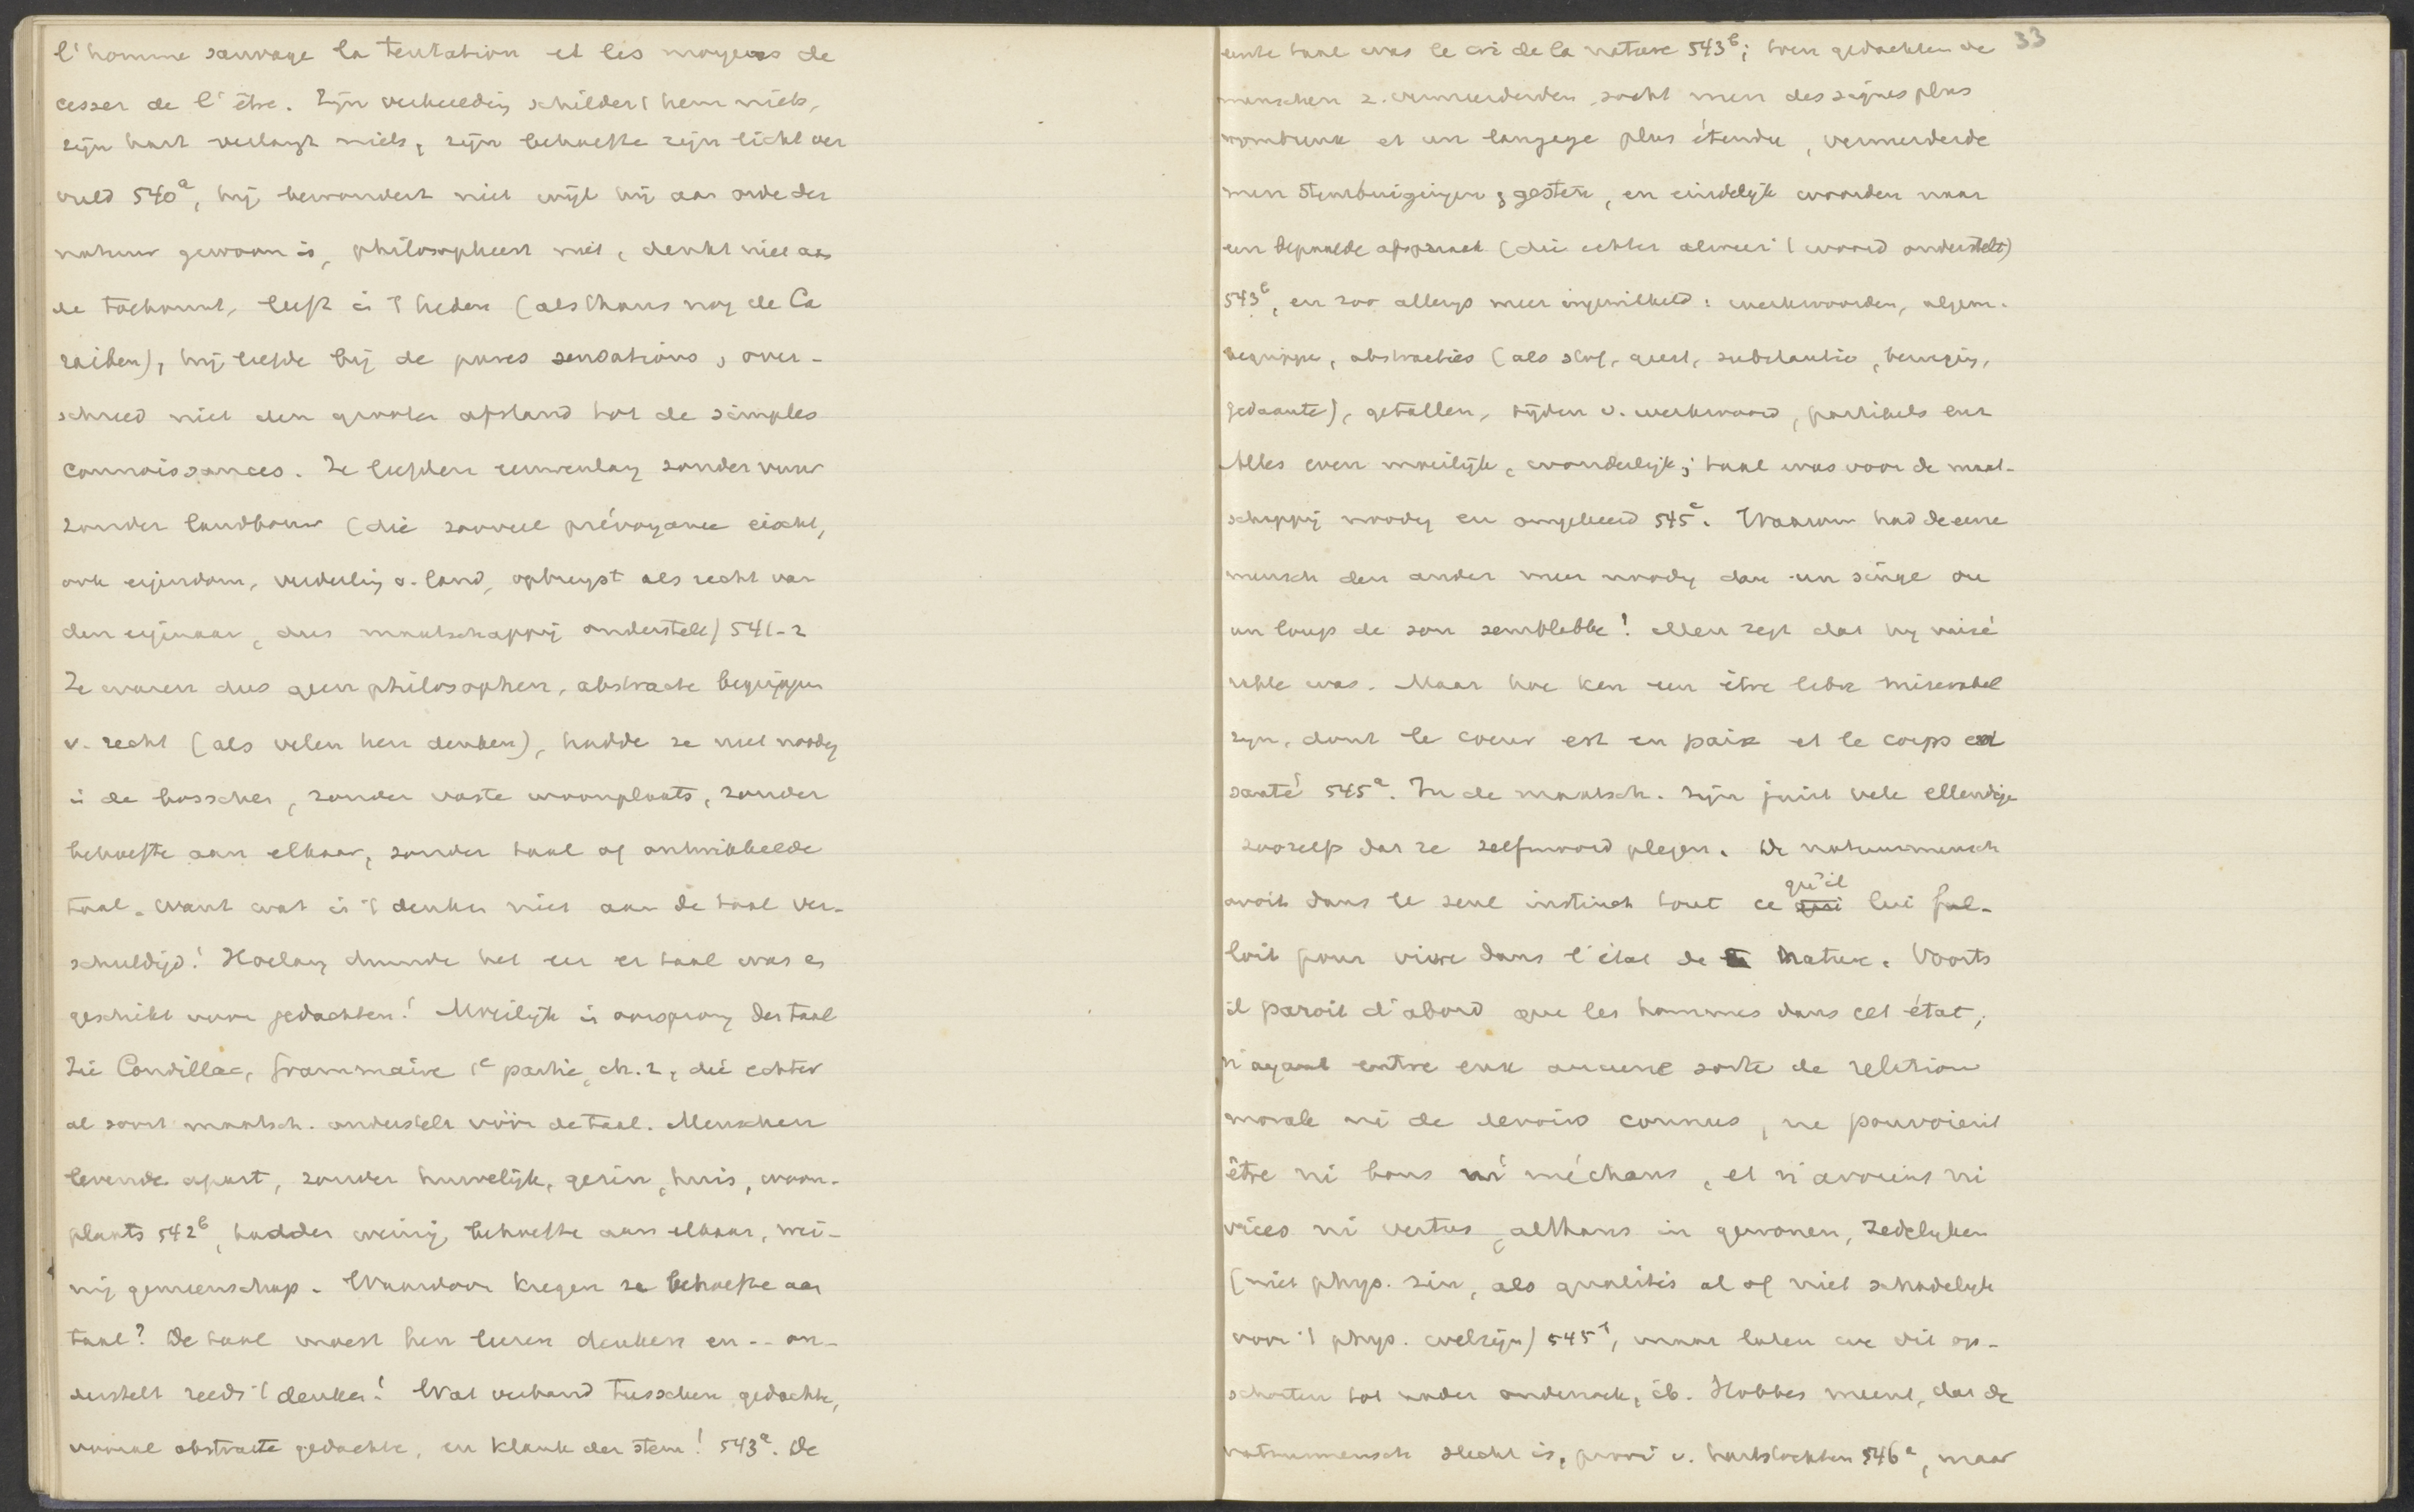 l'homme sauvage la tentation et les moyens de
cesser de l'être. Zijn verbeelding schildert hem niets,
zijn hart verlangt niets, zijn behoefte zijn licht ver
vuld 540a, hij bewondert niet wijl hij aan orde der
natuur gewoon is, philosopheert niet, denkt niet aan
de toekomst, leeft in 't heden (als thans nog de Ca
raiben), hij leefde bij de pures sensations, over-
schreed niet den grooten afstand tot de simples
connaissances. Ze leefden eeuwenlang zonder vuur
zonder landbouw (die zooveel prévoyance eischt,
ook eigendom, verdeeling v. land, opbrengst als recht van
den eigenaar, dus maatschappij onderstelt) 541-2
Ze waren dus geen philosophen, abstracte begrippen
v. recht (als velen hen denken), hadde ze niet noodig
in de bosschen, zonder vaste woonplaats, zonder
behoefte aan elkaar, zonder taal of ontwikkelde
taal. Want wat is 't denken niet aan de taal ver-
schuldigd! Hoelang duurde het eer er taal was en
geschikt voor gedachten! Moeilijk is oorsprong der taal
Zie Condillac, Grammaire 1e partie, ch. 2, die echter
al soort maatsch. onderstelt vóór de taal. Menschen
levende apart, zonder huwelijk, gezin, huis, woon-
plaats 542b, hadden weinig behoefte aan elkaar, wei-
nig gemeenschap. Waardoor kregen ze behoefte aan
taal? De taal moest hen leeren denken en -- on-
derstelt reeds 't denken! Wat verband tusschen gedachte,
vooral abstracte gedachte, en klank der stem! 543a. De
33
eerste taal was le cri de la nature 543b; toen gedachten de
menschen z. vermeerderden, zocht men des signes plus
nombreux et un langage plus étendu, vermeerderde
men stembuigingen, gesten, en eindelijk woorden naar
een bepaalde afspraak (die echter alweer 't woord onderstelt)
543b, en zoo allengs meer ingewikkeld: werkwoorden, algem.
begrippen, abstracties (als stof, geest, substantie, beweging,
gedaante), getallen, tijden v. werkwoord, partikels enz
Alles even moeilijk, wonderlijk; taal was voor de maat-
schappij noodig en omgekeerd 545a. Waarom had de eene
mensch den ander meer noodig dan un singe ou
un loup de son semblable! Men zegt dat hij misé
rable was. Maar hoe kan een être libre miserabel
zijn, dont le coeur est en paix et le corps en
santé 545a. In de maatsch. zijn juist vele ellendige
zoozelfs dat ze zelfmoord plegen. De natuurmensch
avoit dans le seul instinct tout ce qu'il lui fal-
loit pour vivre dans l'état de nature. Voorts
il paroit d'abord que les hommes dans cet état,
n'ayant entre eux aucune sorte de relation
morale ni de devoirs connus, ne pouvoient
être ni bons ni méchans, et n'avoient ni
vices ni vertus, althans in gewonen, zedelijken
(niet phys. zin, als qualités al of niet schadelijk
voor 't phys. welzijn) 545, maar laten we dit op-
schorten tot nader onderzoek, ib. Hobbes meent, dat de
natuurmensch slecht is, prooi v. hartstochten 546a, maar